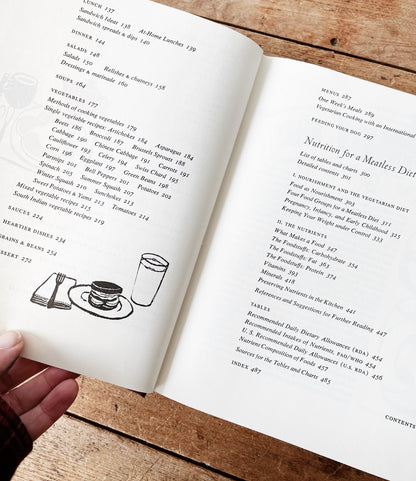 LUNCH 137
Sandwich Ideas 138 At-Home Lunches 139
Sandwich spreads & dips 140
DINNER 144
SALADS 148
Salads 150 Relishes & chutneys 158
Dressings & marinade 160
SOUPS 164
VEGETABLES 177
Methods of cooking vegetables 179
Single vegetable recipes: Artichokes 184 Asparagus 184
Beets 186 Broccoli 187 Brussels Sprouts 188
Cabbage 190 Chinese Cabbage 191 Carrots 191
Cauliflower 193 Celery 194 Swiss Chard 195
Corn 196 Eggplant 197 Green Beans 198
Parsnips 201 Bell Peppers 201 Potatoes 202
Spinach 205 Summer Squash 207
Winter Squash 210 Zucchini
Sweet Potatoes & Yams 213 Tomatoes 214
Mixed vegetable recipes 215
South Indian vegetable recipes 219
SAUCES 224
HEARTIER DISHES 234
GRAINS & BEANS 254
DESSERT 272
MENUS 287
One Week's Meals 289
Vegetarian Cooking with an Internation
FEEDING YOUR DOG 297
Nutrition for a Meatless Diet
List of tables and charts 300
Detailed contents 301
I. NOURISHMENT AND THE VEGETARIAN DIET
Food as Nourishment 303
Four Food Groups for a Meatless Diet 311
Pregnancy, Infancy, and Early Childhood 325
Keeping Your Weight under Control 333
II. THE NUTRIENTS
What Makes a Food 347
The Foodstuffs: Carbohydrate 354
The Foodstuffs: Fat 363
The Foodstuffs: Protein 374
Vitamins 393
Minerals 418
Preserving Nutrients in the Kitchen 441
References and Suggestions for Further Reading 447
TABLES
Recommended Daily Dietary Allowances (RDA) 454
Recommended Intakes of Nutrients, FAO/WHO 454
U. S. Recommended Daily Allowances (U.S. RDA) 456
Nutrient Composition of Foods 457
Sources for the Tables and Charts 485
INDEX 487
CONTENTS